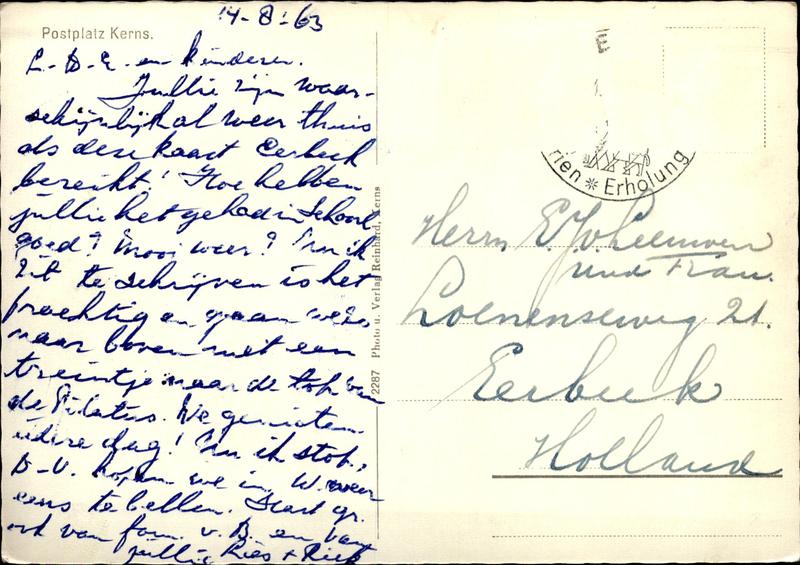 14-8-'63
Postplatz Kerns.
L. B. E. en kinderen.
Jullie zijn waar-
schijnlijk al weer thuis
als deze kaart Eerbeek
bereikt! Hoe hebben
jullie het gehad in Schoorl
goed? Mooi weer? Nu ik
zit te schrijven is het
prachtig en gaan we
naar boven met een
treintje naar de top van
de Pilatus. We genieten
iedere dag! Nu ik stop,
D.V. hopen we in W. weer
eens te bellen. Hart. gr.
ook van fam. v. B. en van
jullie Ries + Riek
2287 Photo u. Verlag Reinhard, Kerns
E
rien * Erholung
Herrn E. J. v. Leeuwen
und Frau.
Loenenseweg 21.
Eerbeek
Holland